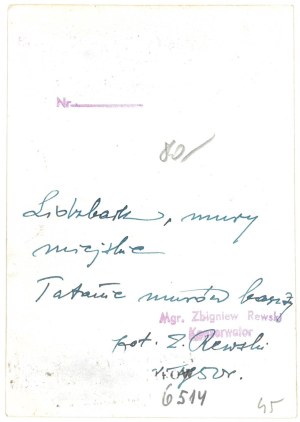 Nr.
80/
Lidzbark, mury
miejskie
murów baszty
Mgr. Zbigniew Rewski
Konserwator
fot. Z. Rewski
1950r.
6514
45